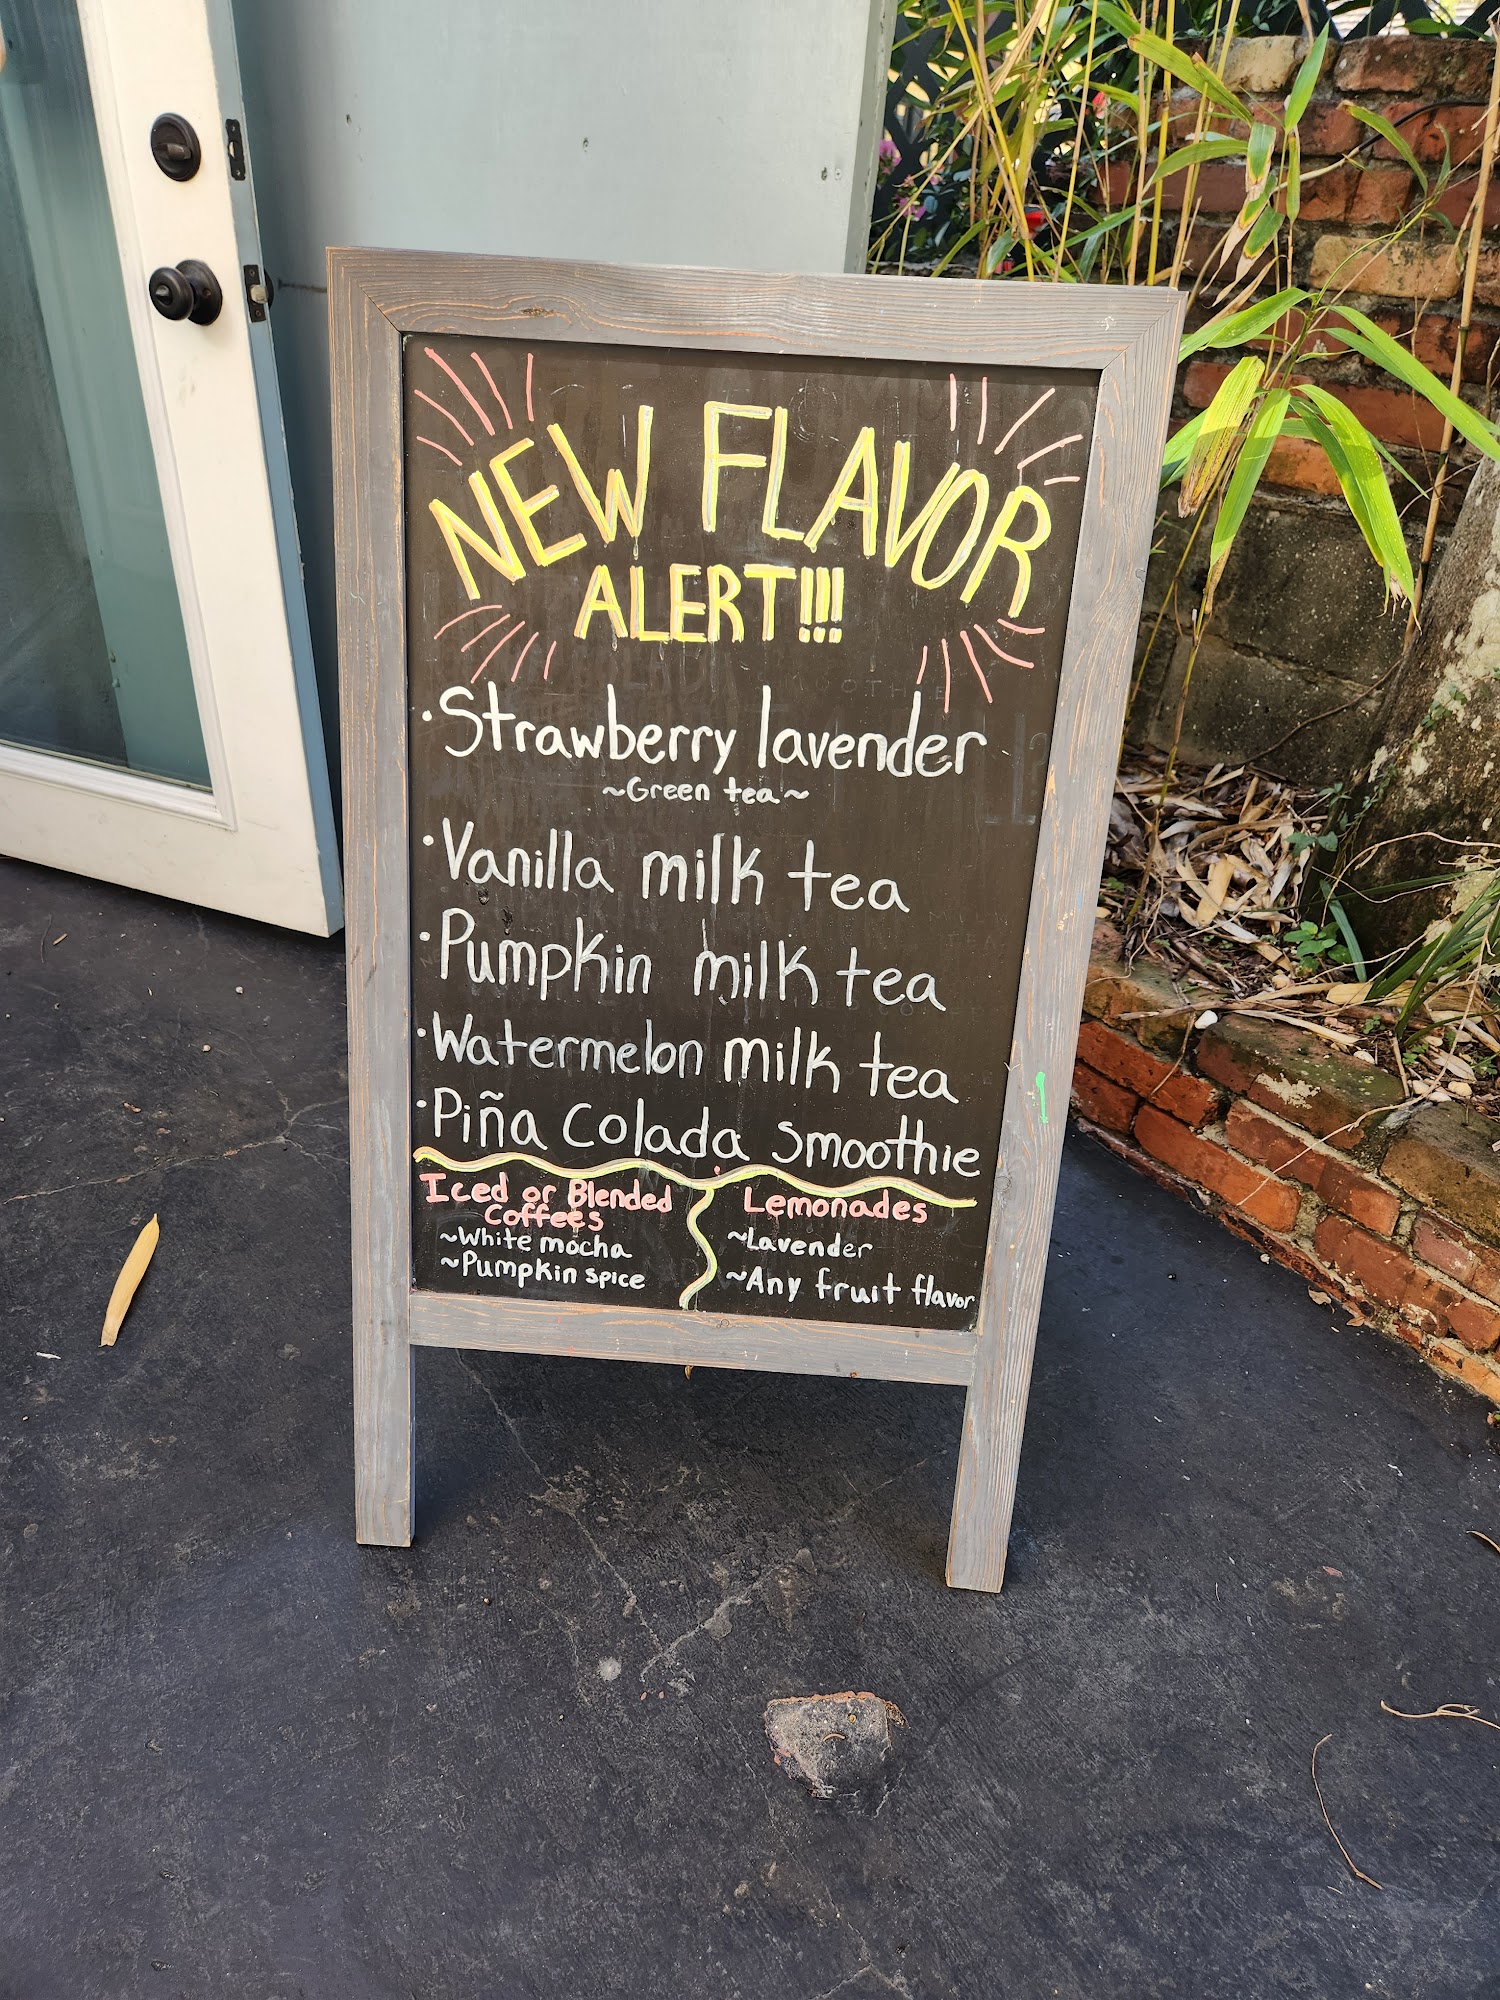 NEW FLAVOR
ALERT!!!
·Strawberry lavender
~Green tea~
·Vanilla milk tea
·Pumpkin milk tea
·Watermelon milk tea
·Piña Colada Smoothie
Iced or Blended
Coffees
~White mocha
~Pumpkin spice
Lemonades
~Lavender
~Any fruit flavor